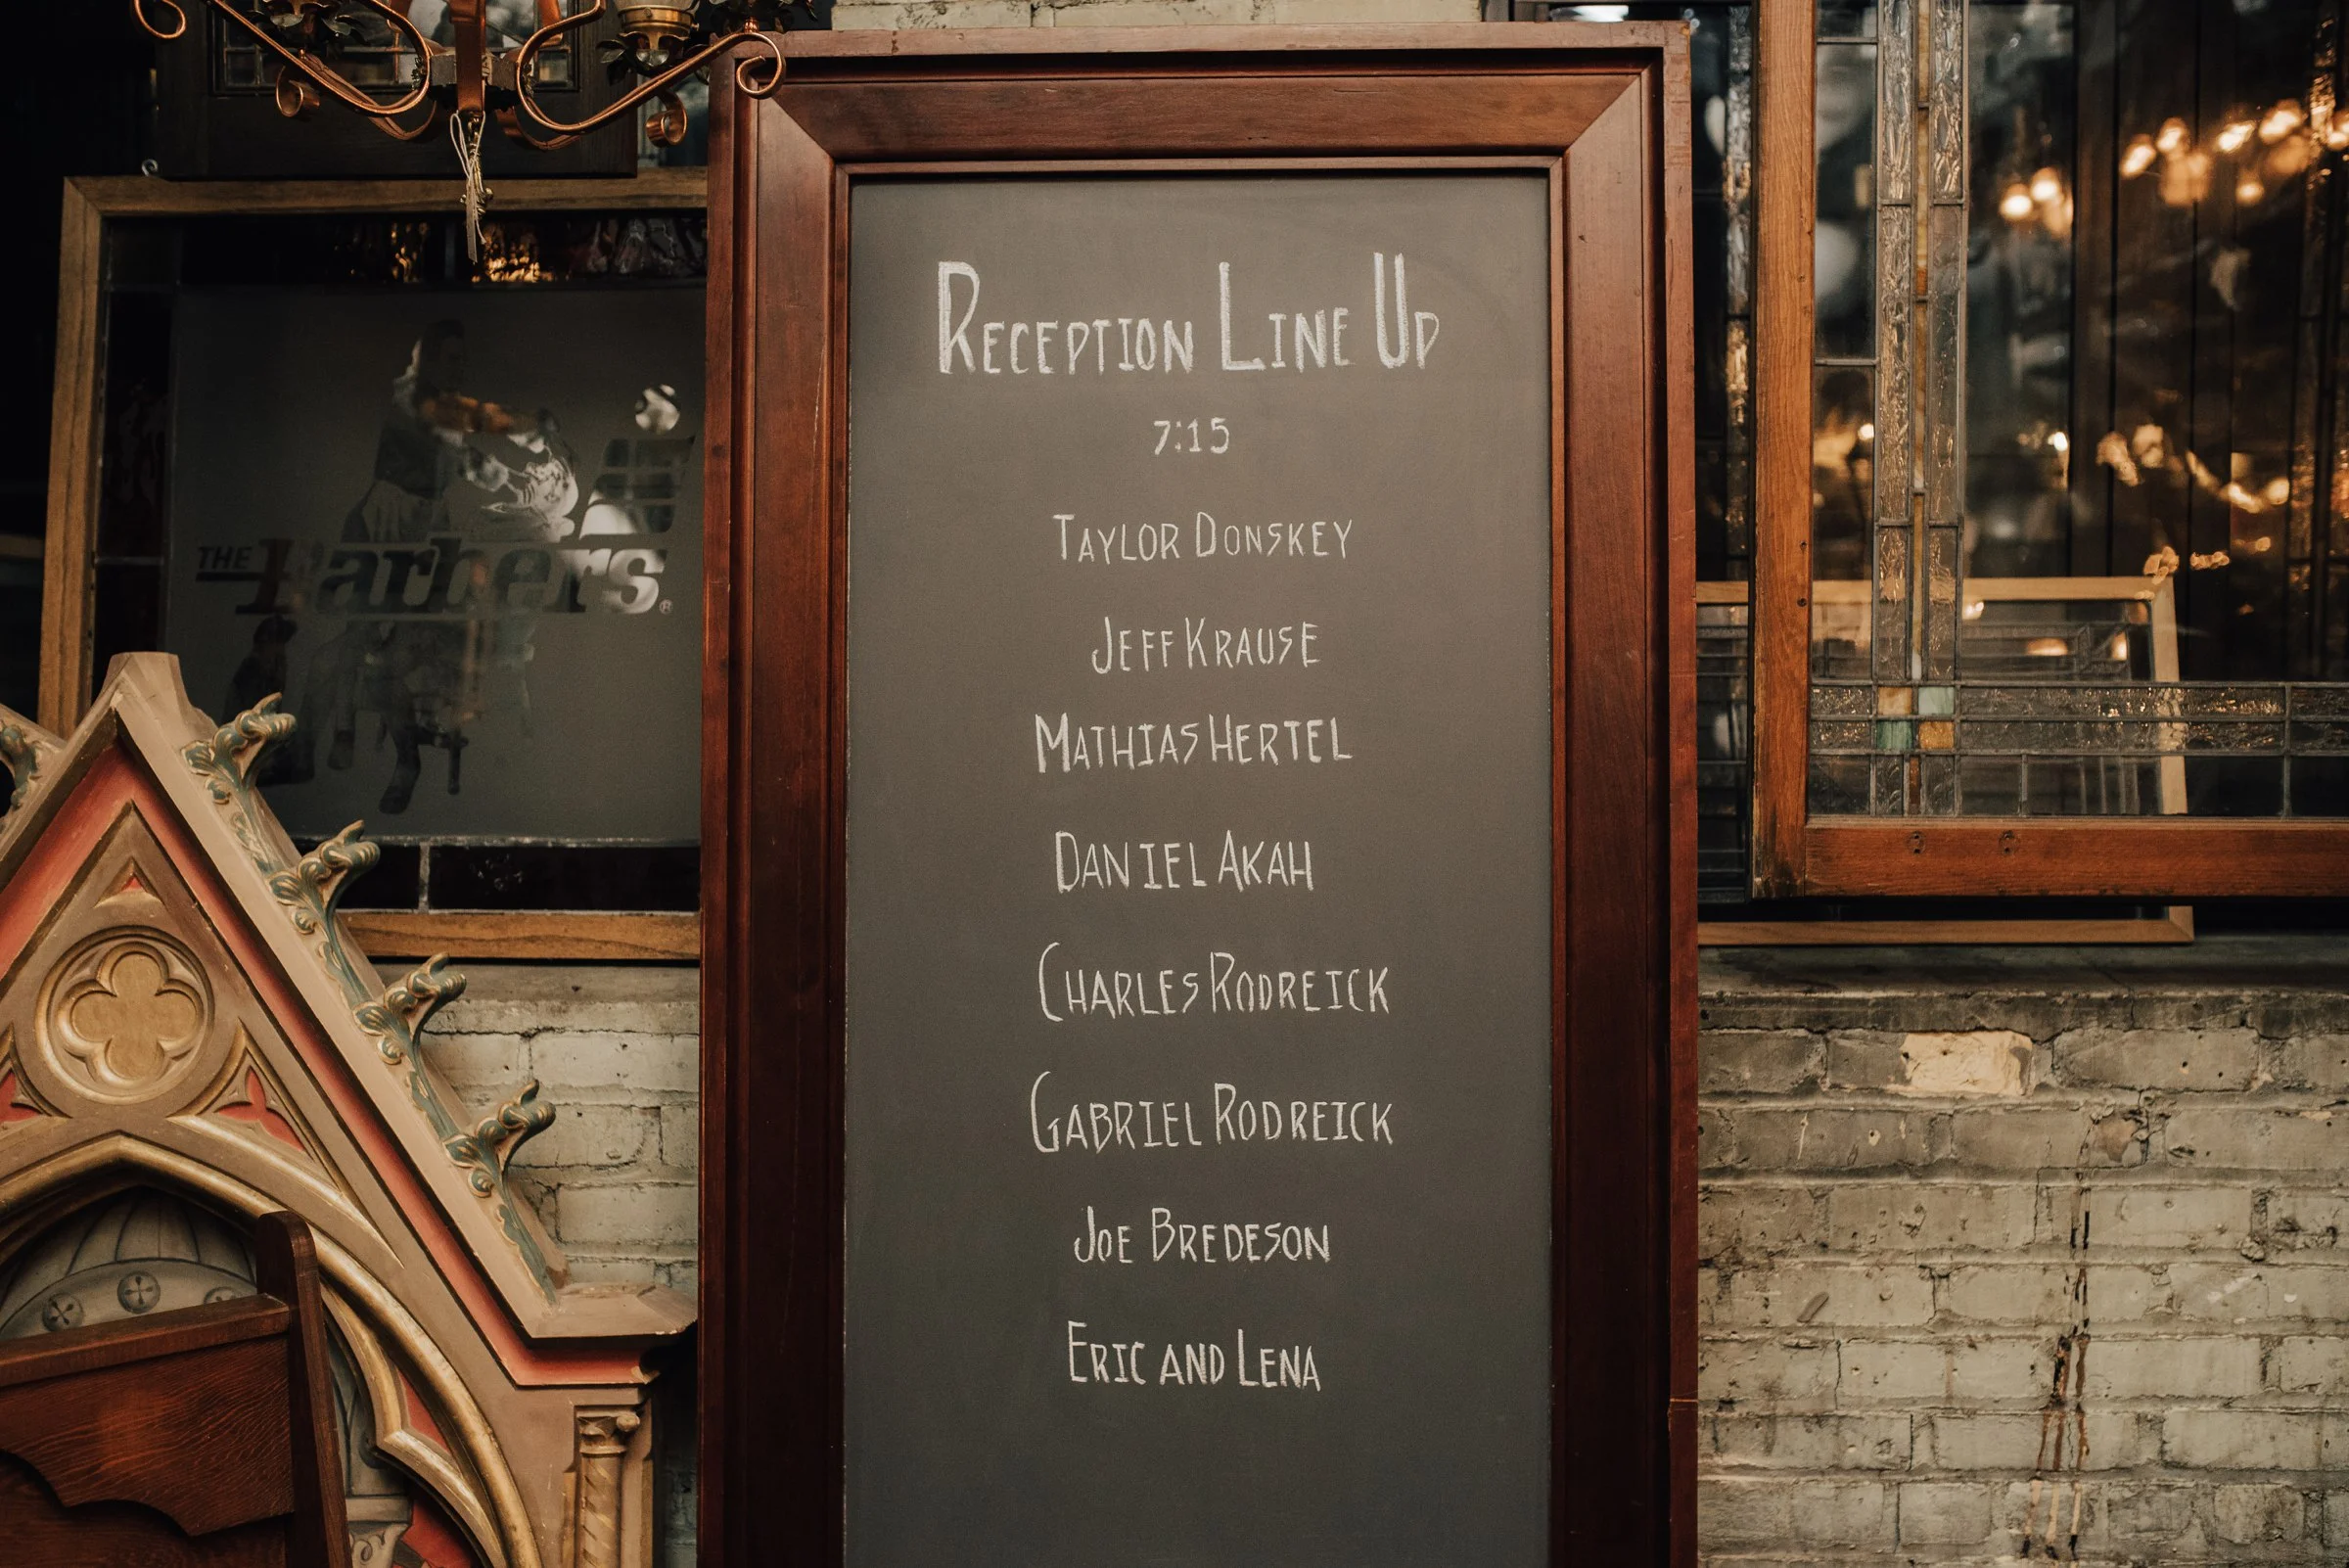 THE Barbers®
Reception Line Up
7:15
Taylor Donskey
Jeff Krause
Mathias Hertel
Daniel Akah
Charles Rodreick
Gabriel Rodreick
Joe Bredeson
Eric and Lena